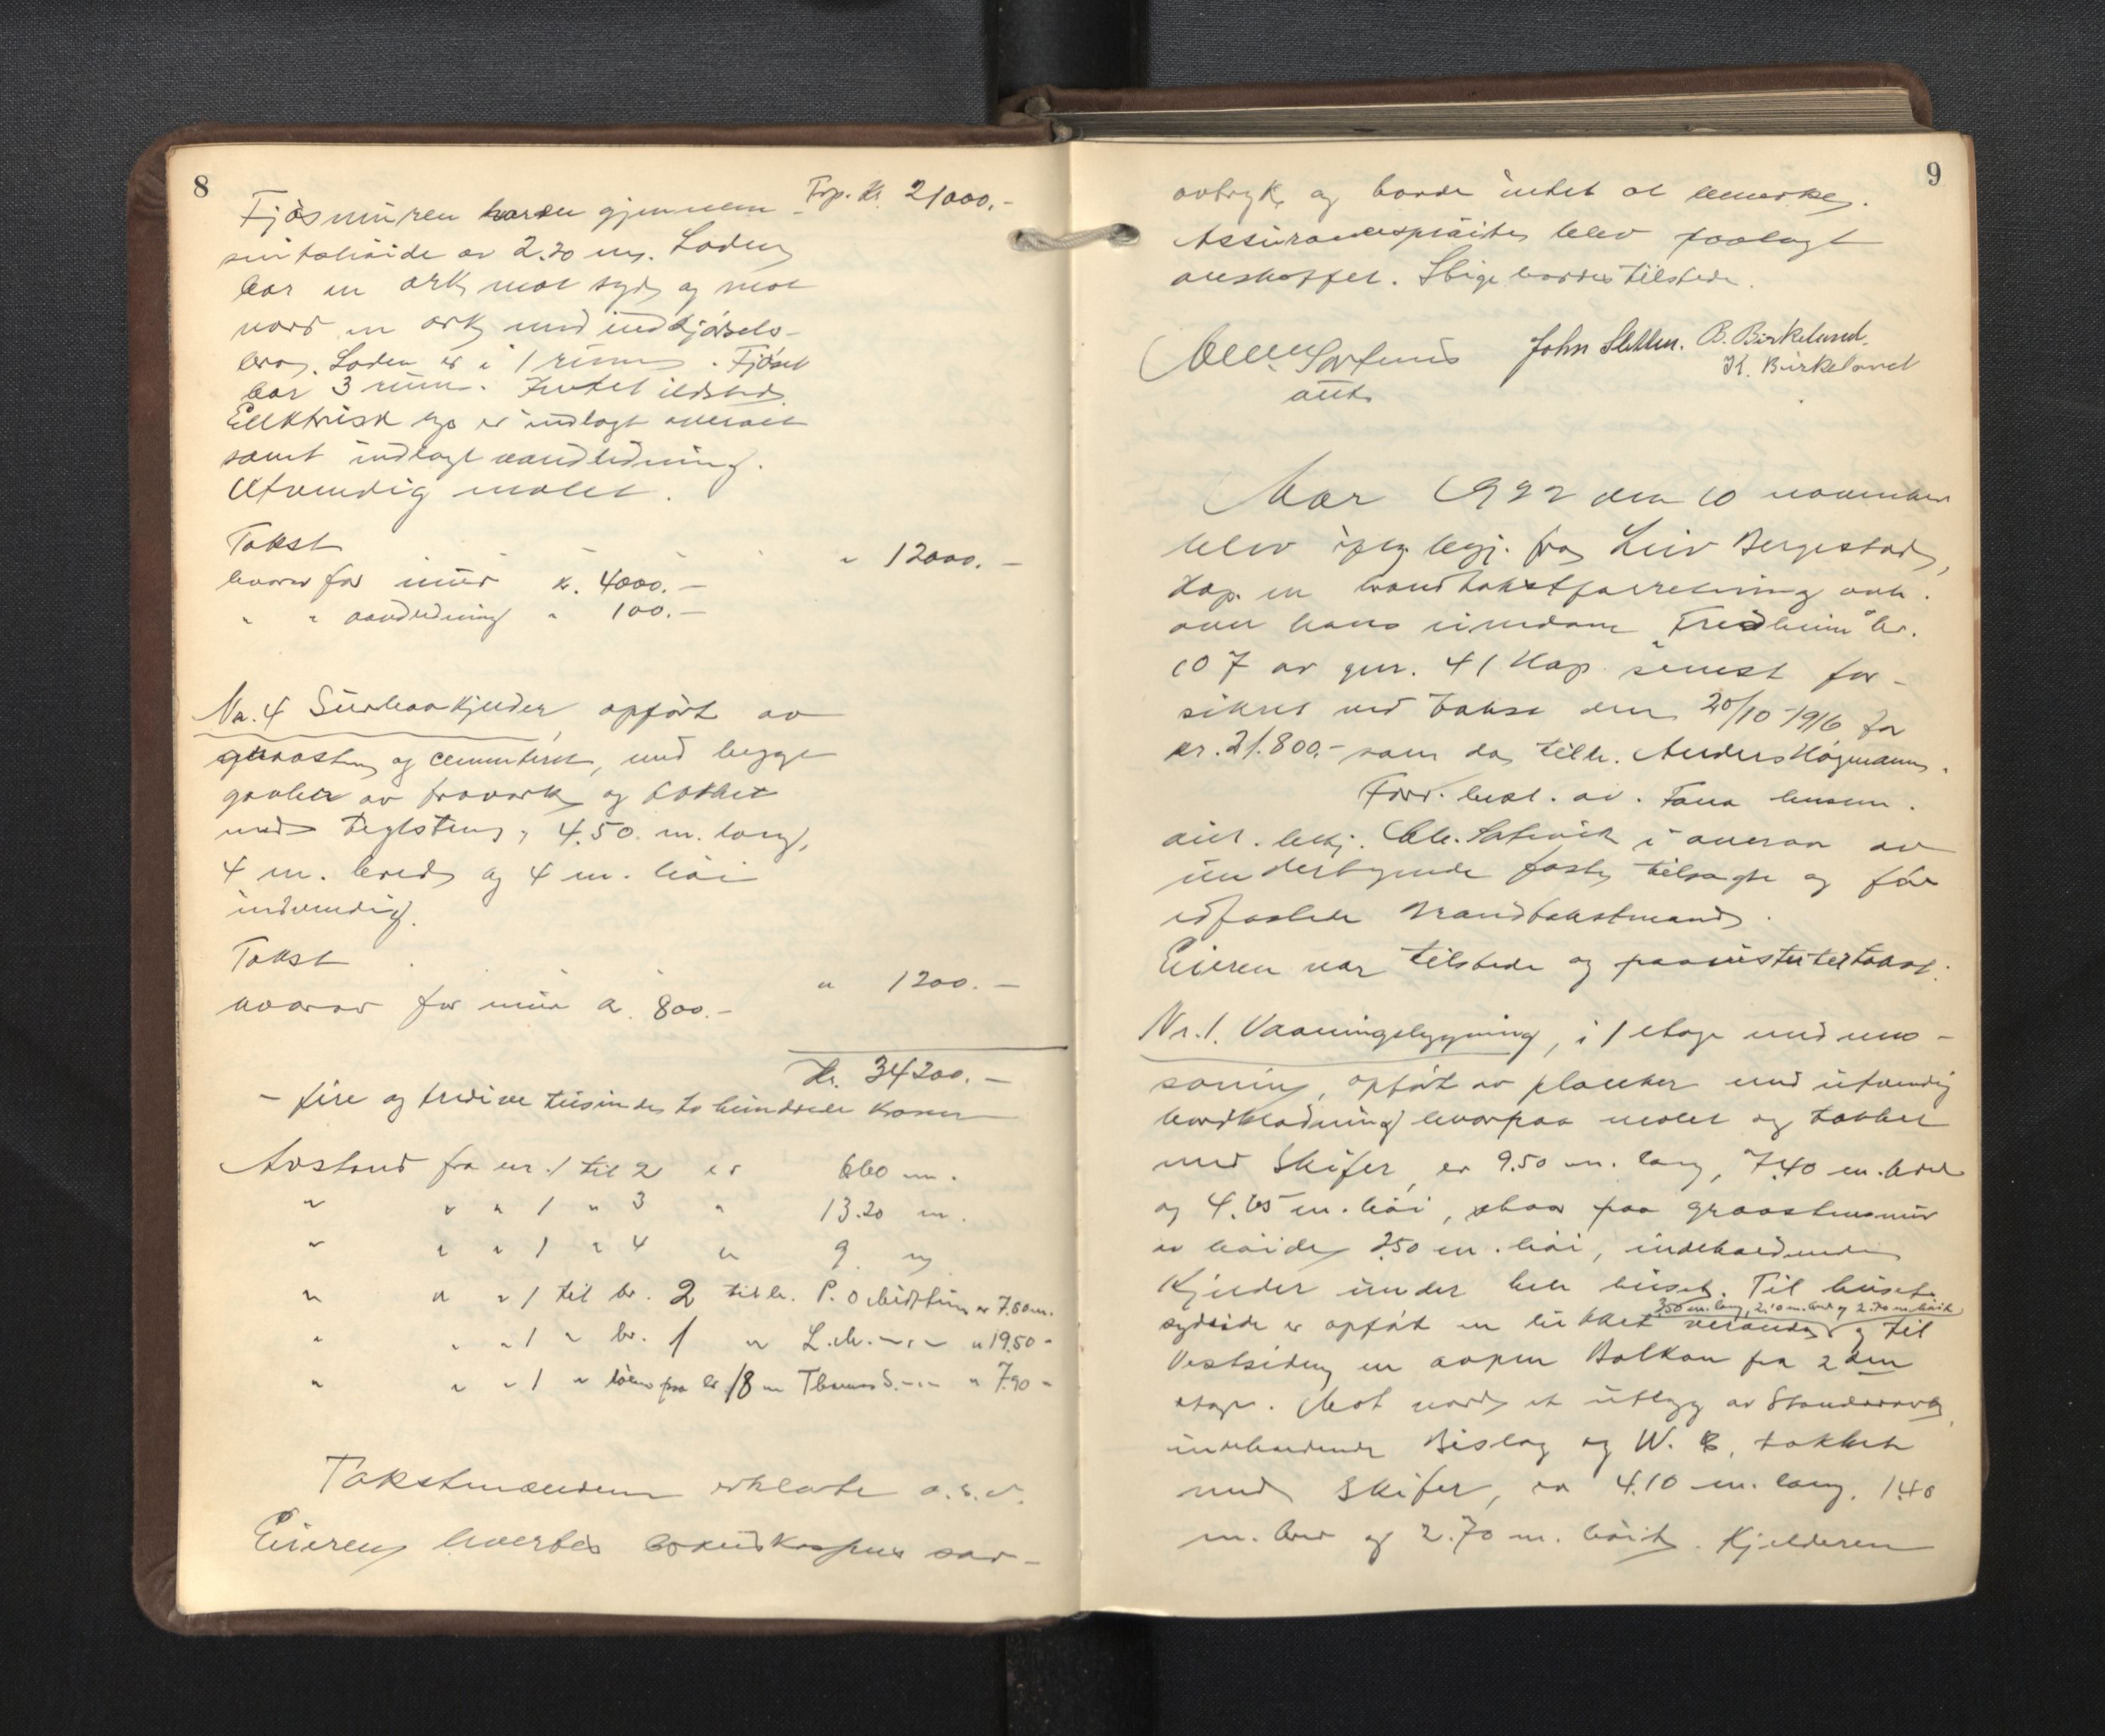 8
Fjøsmuren har en gjennem Trp. Kr. 21000.-
snitshøide av 2.20 m. Laden
har en ark mot syd og mot
nord en ark med indkjørsels-
bro. Laden er i 1 rum. Fjøset
har 3 rum. Intet ildsted.
Elektrisk lys er indlagt overalt
samt indlagt vandledning.
Utvendig malet.
Takst " 12000.-
hvorav for mur kr. 4000.-
" " vandledning " 100.-
Nr. 4 Surhaakjelder, opført av
graasten og cementert, med begge
gavler av travark og takket
med Teglsten, 4.50 m. lang,
4 m. bred og 4 m. høi
indvendig.
Takst " 1200.-
hvorav for mur kr. 800.-
Kr. 34200.-
- fire og tredive tusinde to hundrede kroner
Avstand fra nr. 1 til 2 er 6.60 m.
" " " 1 " 3 " 13.20 m.
" " " 1 " 4 " 9 m
" " " 1 til br. 2 tilh. P. O. er 7.60 m.
" " " 1 " br. 1 " L. M. -"- " 19.50 -
" " " 1 " paa br. 18 " Thomas S. -"- " 7.90 -
Takstmændene erklærte o. s. v.
Eieren hvertes sav-
9
avtryk og havde intet at bemerke.
Assurancesprøiter blev paalagt
anskaffet. Stige havdes tilstede.
John Sletten. B. Birkeland.
K. Birkeland
aut.
Aar 1922 den 10 november
blev efter begj. fra Leiv Bergestad,
Hop. en brandtakstforretning avh.
over hans eiendom "Fredheim" br.
107 av gnr. 41 Hop senest for-
sikret ved takst den 20/10 1916 for
kr. 21.800.- som da tilh. Anders Hagmann.
Forr. best. av. Fana lensm.
aut. i overvær av
undertegnede faste tilsagte og før
edfæstede brandtakstmænd.
Eieren var tilstede og paaviste takst.
Nr. 1. Vaaningsbygning, i 1 etage med man-
saning, opført av planker med utvendig
bordklædning hvorpaa malet og takket
med Skifer, er 9.50 m. lang, 7.40 m. bred
og 4.65 m. høi, staar paa graastensmur
av høide 2.50 m. høi, indeholdende
Kjelder under hele huset. Til husets
3.50 m. lang, 2.10 m. bred og 2.70 m. høit
sydside er opført en lukket veranda og til
Vestsiden en aapen Balkon fra 2den
etage. Mot nord et utbygg av Standerverk
indeholdende Bislag og W. C, takket
med Skifer, er 4.10 m. lang, 1.40
m. bred og 2.70 m. høit. Kjelderen